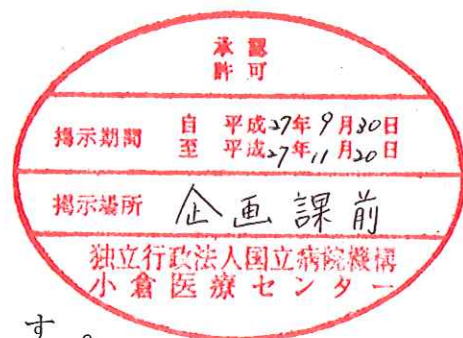 承認
許可
掲示期間 自 平成27年9月30日
至 平成27年11月20日
掲示場所 企画課前
独立行政法人国立病院機構
小倉医療センター
す。